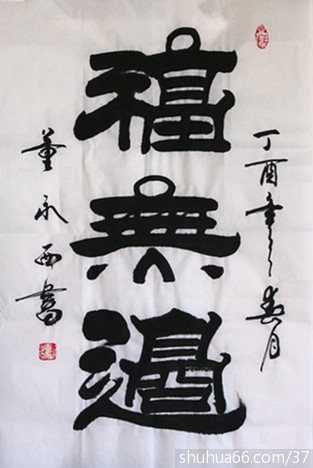 丁酉年之春月
福無邊
董永西書
shuhua66.com/37